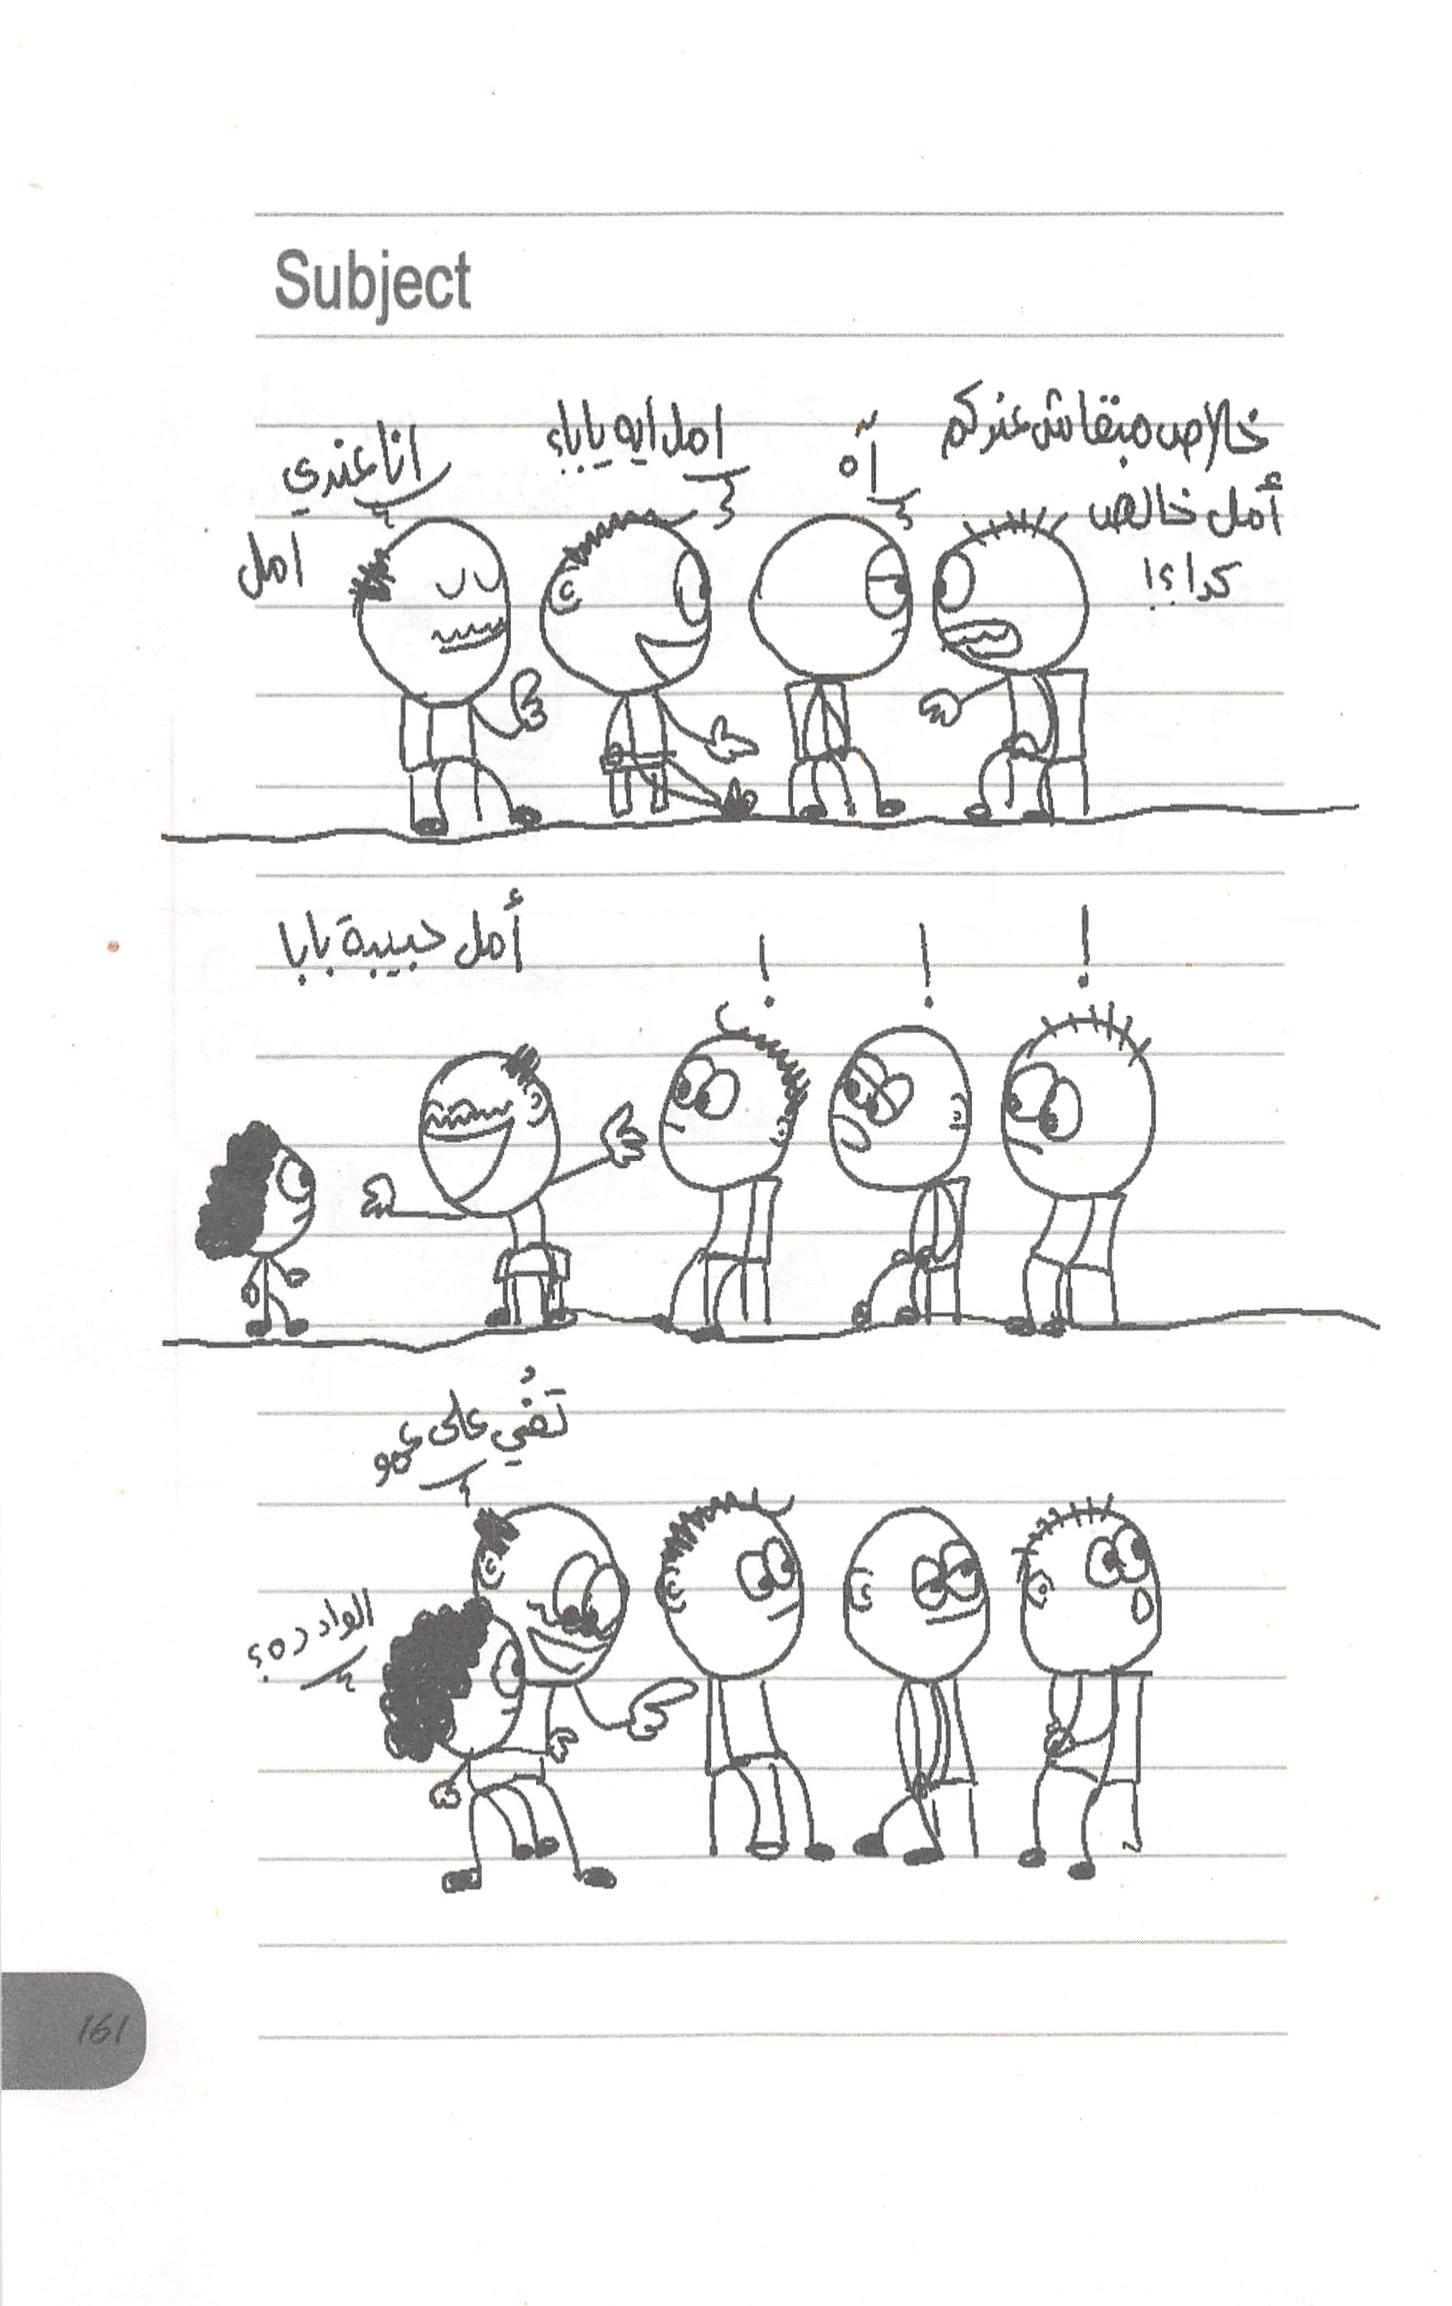 Subject
خلاص مبقاش عندكم
أمل خالص
كدا ؟!
آه
امل ايه يا بابا؟
انا عندي
امل
! ! !
أمل حبيبة بابا
تفّي على عمو
الواد ده؟
161